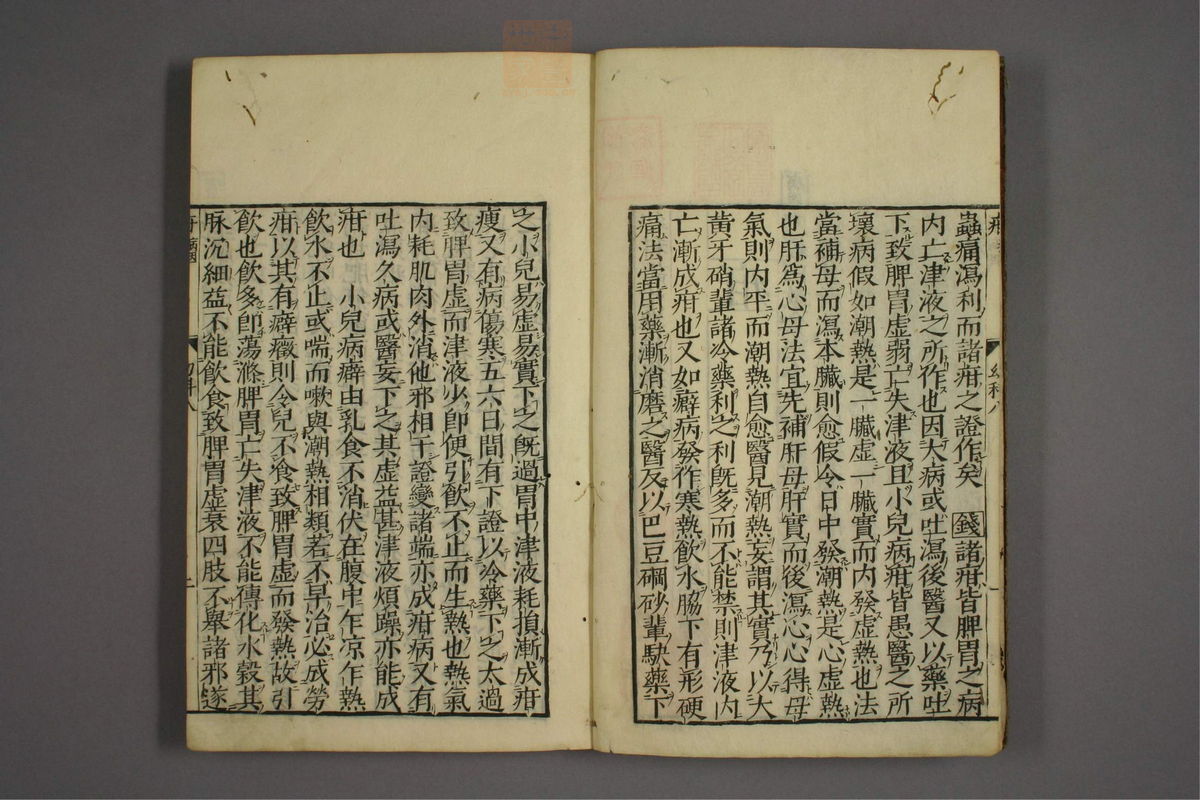 蟲痛瀉利而諸疳之證作矣 錢諸疳皆脾胃之病
内亡津液之所作也因大病或吐瀉後醫又以藥吐
下致脾胃虚弱亡失津液且小兒病疳皆愚醫之所
壞病假如潮熱是一臟虚一臟實而内發虚熱也法
當補母而瀉本臟則愈假令日中發潮熱是心虚熱
也肝爲心母法宜先補肝母肝實而後瀉心心得母
氣則内平而潮熱自愈醫見潮熱妄謂其實乃以大
黄牙硝輩諸冷藥利之利既多而不能禁則津液内
亡漸成疳也又如癖病發作寒熱飲水脇下有形硬
痛法當用藥漸消磨之醫反以巴豆硇砂輩駃藥下
之小兒易虚易實下之既過胃中津液耗損漸成疳
瘦又有病傷寒五六日間有下證以冷藥下之太過
致脾胃虚而津液少即使引飲不止而生熱也熱氣
内耗肌肉外消他邪相干證變諸端亦成疳病又有
吐瀉久病或醫妄下之其虚益甚津液煩躁亦能成
疳也 小兒病癖由乳食不消伏在腹中乍凉乍熱
飲水不止或喘而嗽與潮熱相類若不早治必成勞
疳以其有癖癥則令兒不食致脾胃虚而發熱故引
飲也飲多即蕩滌脾胃亡失津液不能傳化水穀其
脉沉細益不能飲食致脾胃虚衰四肢不舉諸邪遂